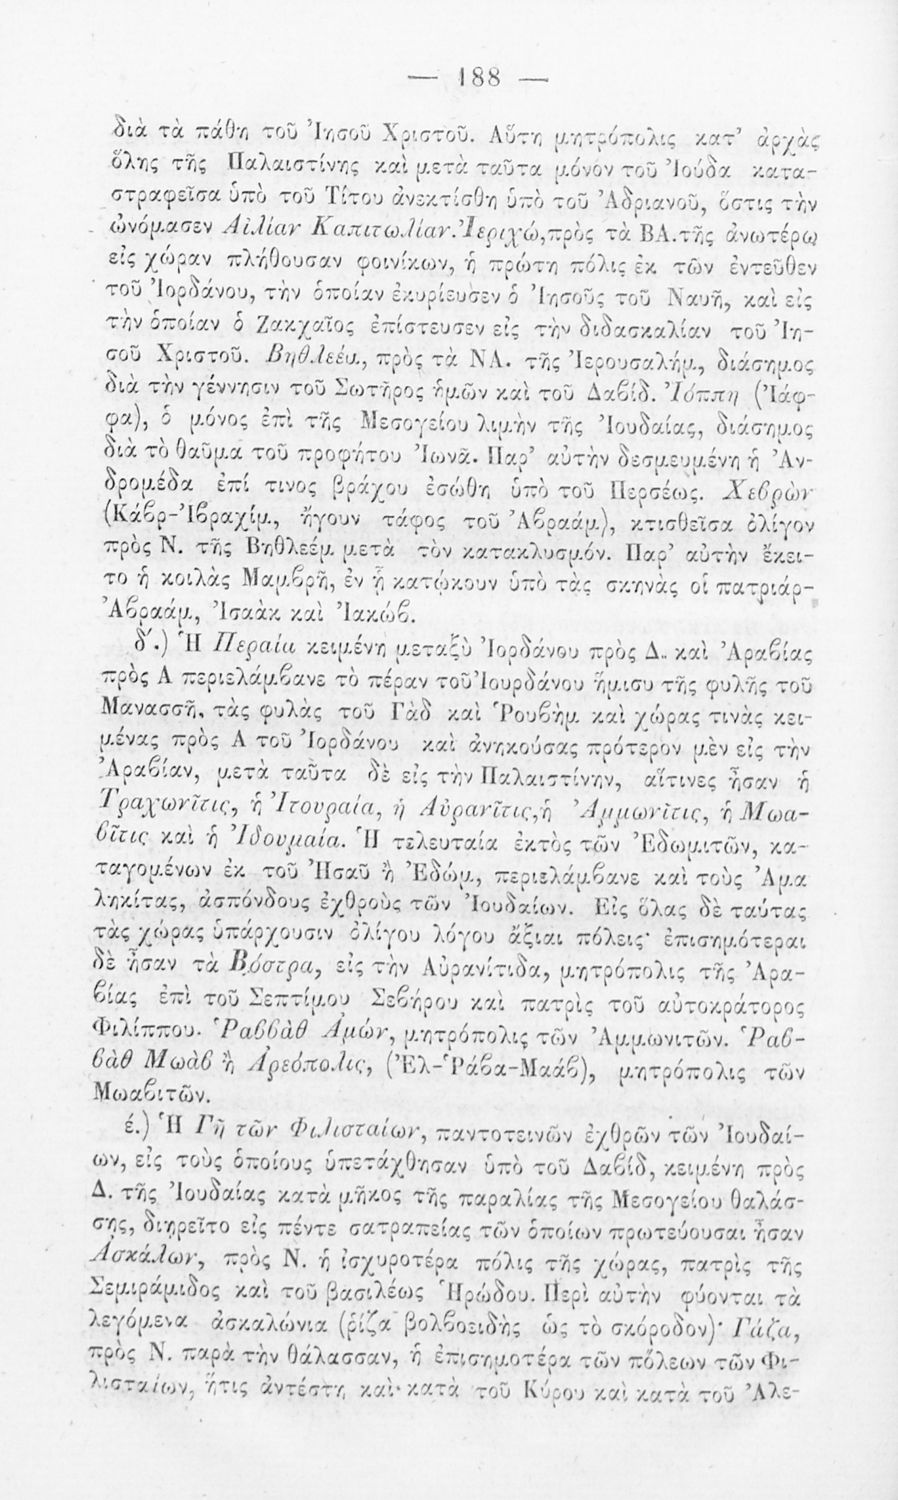 — 188 —
διὰ τὰ πάθη τοῦ Ἰησοῦ Χριστοῦ. Αὕτη μητρόπολις κατ’ ἀρχὰς
ὅλης τῆς Παλαιστίνης καὶ μετὰ ταῦτα μόνον τοῦ Ἰούδα κατα-
στραφεῖσα ὑπὸ τοῦ Τίτου ἀνεκτίσθη ὑπὸ τοῦ Ἀδριανοῦ, ὅστις τὴν
ὠνόμασεν Αἰλίαν Καπιτωλίαν. Ἱεριχώ, πρὸς τὰ ΒΑ. τῆς ἀνωτέρω
εἰς χώραν πλήθουσαν φοινίκων, ἡ πρώτη πόλις ἐκ τῶν ἐντεῦθεν
τοῦ Ἰορδάνου, τὴν ὁποίαν ἐκυρίευσεν ὁ Ἰησοῦς τοῦ Ναυῆ, καὶ εἰς
τὴν ὁποίαν ὁ Ζακχαῖος ἐπίστευσεν εἰς τὴν διδασκαλίαν τοῦ Ἰη-
σοῦ Χριστοῦ. Βηθλεέμ, πρὸς τὰ ΝΑ. τῆς Ἱερουσαλήμ, διάσημος
διὰ τὴν γέννησιν τοῦ Σωτῆρος ἡμῶν καὶ τοῦ Δαβίδ. Ἰόππη (Ἰάφ-
φα), ὁ μόνος ἐπὶ τῆς Μεσογείου λιμὴν τῆς Ἰουδαίας, διάσημος
διὰ τὸ θαῦμα τοῦ προφήτου Ἰωνᾶ. Παρ’ αὐτὴν δεσμευμένη ἡ Ἀν-
δρομέδα ἐπί τινος βράχου ἐσώθη ὑπὸ τοῦ Περσέως. Χεβρὼν
(Κάβρ-Ἰβραχίμ, ἤγουν τάφος τοῦ Ἀβραάμ), κτισθεῖσα ὀλίγον
πρὸς Ν. τῆς Βηθλεέμ μετὰ τὸν κατακλυσμόν. Παρ’ αὐτὴν ἔκει-
το ἡ κοιλὰς Μαμβρῆ, ἐν ᾗ κατῴκουν ὑπὸ τὰς σκηνὰς οἱ πατριάρ-
Ἀβραάμ, Ἰσαὰκ καὶ Ἰακώβ.
δ΄.) Ἡ Περαία κειμένη μεταξὺ Ἰορδάνου πρὸς Δ. καὶ Ἀραβίας
πρὸς Α περιελάμβανε τὸ πέραν τοῦ Ἰουρδάνου ἥμισυ τῆς φυλῆς τοῦ
Μανασσῆ, τὰς φυλὰς τοῦ Γὰδ καὶ Ῥουβὴμ καὶ χώρας τινὰς κει-
μένας πρὸς Α τοῦ Ἰορδάνου καὶ ἀνηκούσας πρότερον μὲν εἰς τὴν
Ἀραβίαν, μετὰ ταῦτα δὲ εἰς τὴν Παλαιστίνην, αἵτινες ἦσαν ἡ
Τραχωνῖτις, ἡ Ἰτουραία, ἡ Αὐρανῖτις, ἡ Ἀμμωνῖτις, ἡ Μωα-
βῖτις καὶ ἡ Ἰδουμαία. Ἡ τελευταία ἐκτὸς τῶν Ἐδωμιτῶν, κα-
ταγομένων ἐκ τοῦ Ἡσαῦ ἢ Ἐδώμ, περιελάμβανε καὶ τοὺς Ἀμα
ληκίτας, ἀσπόνδους ἐχθροὺς τῶν Ἰουδαίων. Εἰς ὅλας δὲ ταύτας
τὰς χώρας ὑπάρχουσιν ὀλίγου λόγου ἄξιαι πόλεις· ἐπισημότεραι
δὲ ἦσαν τὰ Βόστρα, εἰς τὴν Αὐρανίτιδα, μητρόπολις τῆς Ἀρα-
βίας ἐπὶ τοῦ Σεπτίμου Σεβήρου καὶ πατρὶς τοῦ αὐτοκράτορος
Φιλίππου. Ῥαββὰθ Ἀμών, μητρόπολις τῶν Ἀμμωνιτῶν. Ῥαβ-
βὰθ Μωὰβ ἢ Ἀρεόπολις, (Ἐλ-Ῥάβα-Μαάβ), μητρόπολις τῶν
Μωαβιτῶν.
έ.) Ἡ Γῆ τῶν Φιλισταίων, παντοτεινῶν ἐχθρῶν τῶν Ἰουδαί-
ων, εἰς τοὺς ὁποίους ὑπετάχθησαν ὑπὸ τοῦ Δαβίδ, κειμένη πρὸς
Δ. τῆς Ἰουδαίας κατὰ μῆκος τῆς παραλίας τῆς Μεσογείου θαλάσ-
σης, διῃρεῖτο εἰς πέντε σατραπείας τῶν ὁποίων πρωτεύουσαι ἦσαν
Ἀσκάλων, πρὸς Ν. ἡ ἰσχυροτέρα πόλις τῆς χώρας, πατρὶς τῆς
Σεμιράμιδος καὶ τοῦ βασιλέως Ἡρώδου. Περὶ αὐτὴν φύονται τὰ
λεγόμενα ἀσκαλώνια (ῥίζα βολβοειδὴς ὡς τὸ σκόροδον)· Γάζα,
πρὸς Ν. παρὰ τὴν θάλασσαν, ἡ ἐπισημοτέρα τῶν πόλεων τῶν Φι-
λισταίων, ἥτις ἀντέστη καὶ κατὰ τοῦ Κύρου καὶ κατὰ τοῦ Ἀλε-